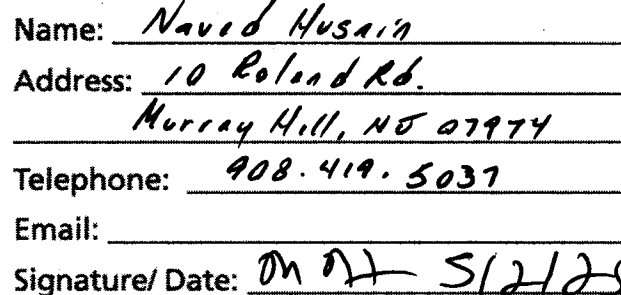 Name: Naved Husain
Address: 10 Roland Rd.
Murray Hill, NJ 07974
Telephone: 908.419.5037
Email:
Signature/ Date: 5/2/2